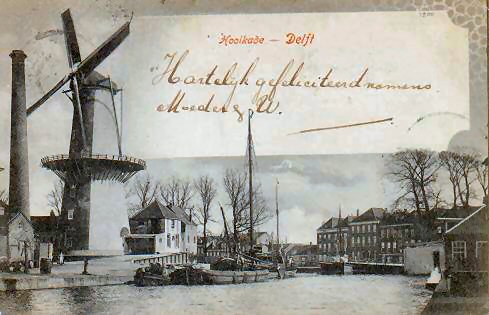 Hooikade – Delft
Hartelijk gefeliciteerd namens
Moeder & W.